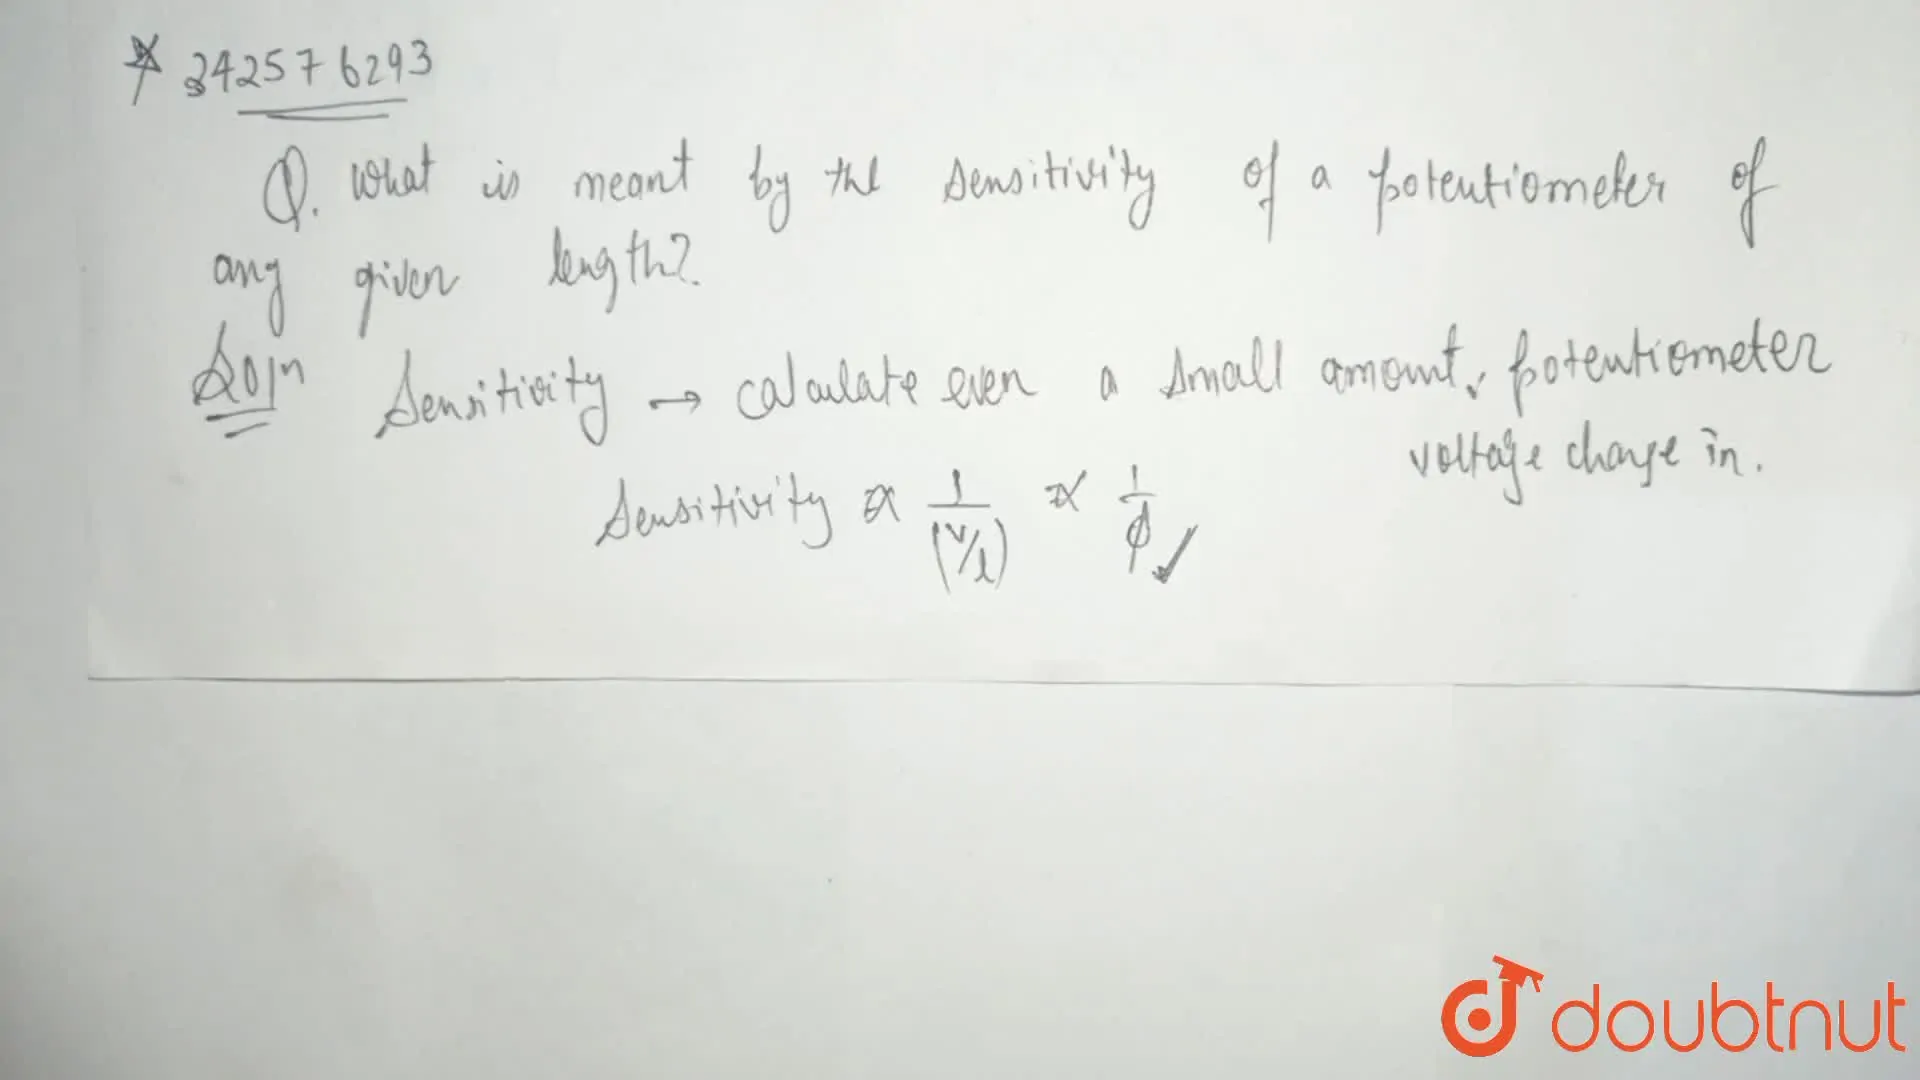 342576293
Q. What is meant by the sensitivity of a potentiometer of
any given length?
Soln Sensitivity → calculate even a small amount, potentiometer
voltage change in.
Sensitivity ∝ 1/(V/l) ∝ 1/ϕ
doubtnut